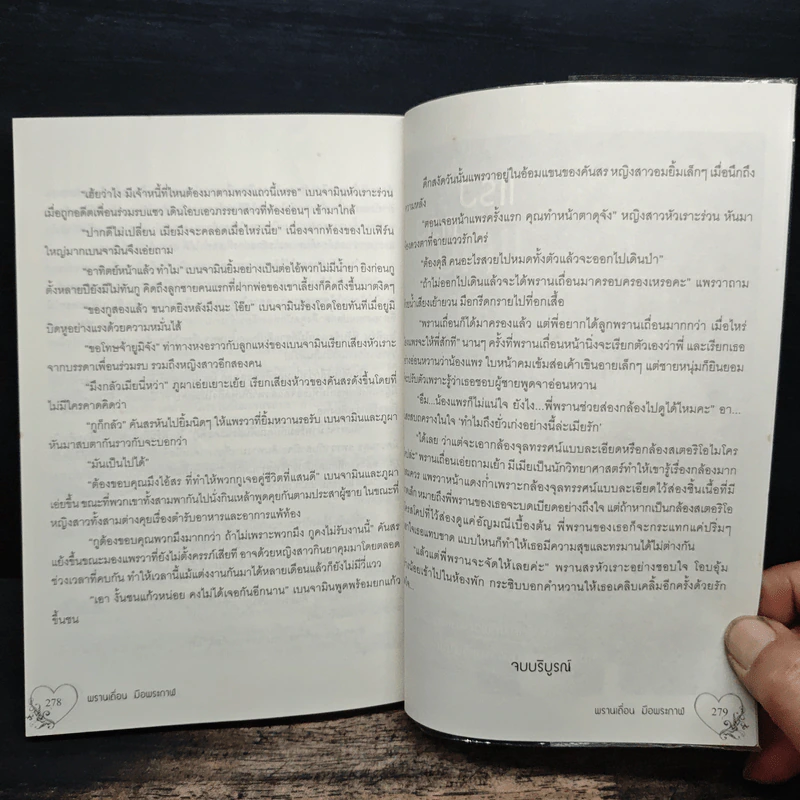 “เฮ้ยว่าไง มีเจ้าหนี้ที่ไหนต้องมาตามทวงแถวนี้เหรอ” เบนจามินหัวเราะร่วน
เมื่อถูกอดีตเพื่อนร่วมรบแซว เดินโอบเอวภรรยาสาวที่ท้องอ่อนๆ เข้ามาใกล้
“ปากดีไม่เปลี่ยน เมียมึงจะคลอดเมื่อไหร่เนี่ย” เนื่องจากท้องของใบเฟิร์น
ใหญ่มากเบนจามินจึงเอ่ยถาม
“อาทิตย์หน้าแล้ว ทำไม” เบนจามินยิ้มอย่างเป็นต่อไอ้พวกไม่มีน้ำยา ยิงก่อนกู
ตั้งหลายปียังมีไม่ทันกู คิดถึงลูกชายคนแรกที่ฝากพ่อของเขาเลี้ยงก็คิดถึงขึ้นมาตงิดๆ
“ของกูสองแล้ว ขนาดยิงหลังมึงนะ โอ๊ย” เบนจามินร้องโอดโอยทันทีเมื่อยูมิ
บิดหูอย่างแรงด้วยความหมั่นไส้
“ขอโทษจ้ายูมิจัง” ท่าทางหงอราวกับลูกแหง่ของเบนจามินเรียกเสียงหัวเราะ
จากบรรดาเพื่อนร่วมรบ รวมถึงหญิงสาวอีกสองคน
“มึงกลัวเมียนี่หว่า” ภูผาเอ่ยเยาะเย้ย เรียกเสียงห้าวของคันสรดังขึ้นโดยที่
ไม่มีใครคาดคิดว่า
“กูก็กลัว” คันสรหันไปยิ้มนิดๆ ให้แพรวาที่ยิ้มหวานรอรับ เบนจามินและภูผา
หันมาสบตากันราวกับจะบอกว่า
“มันเป็นไปได้”
“ต้องขอบคุณมึงไอ้สร ที่ทำให้พวกกูเจอคู่ชีวิตที่แสนดี” เบนจามินและภูผา
เอ่ยขึ้น ขณะที่พวกเขาทั้งสามพากันไปนั่งกินเหล้าพูดคุยกันตามประสาผู้ชาย ในขณะที่
หญิงสาวทั้งสามต่างคุยเรื่องตำรับอาหารและอาการแพ้ท้อง
“กูต้องขอบคุณพวกมึงมากกว่า ถ้าไม่เพราะพวกมึง กูคงไม่รับงานนี้” คันสร
แย้งขึ้นขณะมองแพรวาที่ยังไม่ตั้งครรภ์เสียที อาจด้วยหญิงสาวกินยาคุมมาโดยตลอด
ช่วงเวลาที่คบกัน ทำให้เวลานี้แม้แต่งงานกันมาได้หลายเดือนแล้วก็ยังไม่มีวี่แวว
“เอา งั้นชนแก้วหน่อย คงไม่ได้เจอกันอีกนาน” เบนจามินพูดพร้อมยกแก้ว
ขึ้นชน
278 พรานเถื่อน มือพระกาฬ
ดึกสงัดวันนั้นแพรวาอยู่ในอ้อมแขนของคันสร หญิงสาวอมยิ้มเล็กๆ เมื่อนึกถึง
ความหลัง
“ตอนเจอหน้าแพรครั้งแรก คุณทำหน้าตาดุจัง” หญิงสาวหัวเราะร่วน หันมา
ดวงตาที่ฉายแววรักใคร่
“ต้องดุสิ คนอะไรสวยไปหมดทั้งตัวแล้วจะออกไปเดินป่า”
“ถ้าไม่ออกไปเดินแล้วจะได้พรานเถื่อนมาครอบครองเหรอคะ” แพรวาถาม
น้ำเสียงเย้ายวน มือกรีดกรายไปที่อกเสื้อ
“พรานเถื่อนก็ได้มาครองแล้ว แต่พี่อยากได้ลูกพรานเถื่อนมากกว่า เมื่อไหร่
แพรจะให้พี่สักที” นานๆ ครั้งที่พรานเถื่อนหน้านิ่งจะเรียกตัวเองว่าพี่ และเรียกเธอ
อย่างอ่อนหวานว่าน้องแพร ใบหน้าคมเข้มส่อเค้าเขินอายเล็กๆ แต่ชายหนุ่มก็ยินยอม
จะปรับตัวเพราะรู้ว่าเธอชอบผู้ชายพูดจาอ่อนหวาน
“อืม... น้องแพรก็ไม่แน่ใจ ยังไง...พี่พรานช่วยส่องกล้องไปดูได้ไหมคะ” อา...
สบถครางในใจ ‘ทำไมถึงยั่วเก่งอย่างนี้ล่ะเมียรัก’
“ได้เลย ว่าแต่จะเอากล้องจุลทรรศน์แบบละเอียดหรือกล้องสเตอริโอไมโคร
พรานเถื่อนเอ่ยถามเย้า มีเมียเป็นนักวิทยาศาสตร์ทำให้เขารู้เรื่องกล้องมาก
แพรวาหน้าแดงก่ำเพราะกล้องจุลทรรศน์แบบละเอียดไว้ส่องชิ้นเนื้อที่มี
หมายถึงพี่พรานของเธอจะบดเบียดอย่างถึงใจ แต่ถ้าหากเป็นกล้องสเตอริโอ
ที่ไว้ส่องดูแค่อัญมณีเบื้องต้น พี่พรานของเธอก็จะกระแทกแค่ปริ่มๆ
ให้เธอแทบขาด แบบไหนก็ทำให้เธอมีความสุขและทรมานได้ไม่ต่างกัน
“แล้วแต่พี่พรานจะจัดให้เลยค่ะ” พรานสรหัวเราะอย่างชอบใจ โอบอุ้ม
น้อยเข้าไปในห้องพัก กระซิบบอกคำหวานให้เธอเคลิบเคลิ้มอีกครั้งด้วยรัก
จบบริบูรณ์
พรานเถื่อน มือพระกาฬ 279